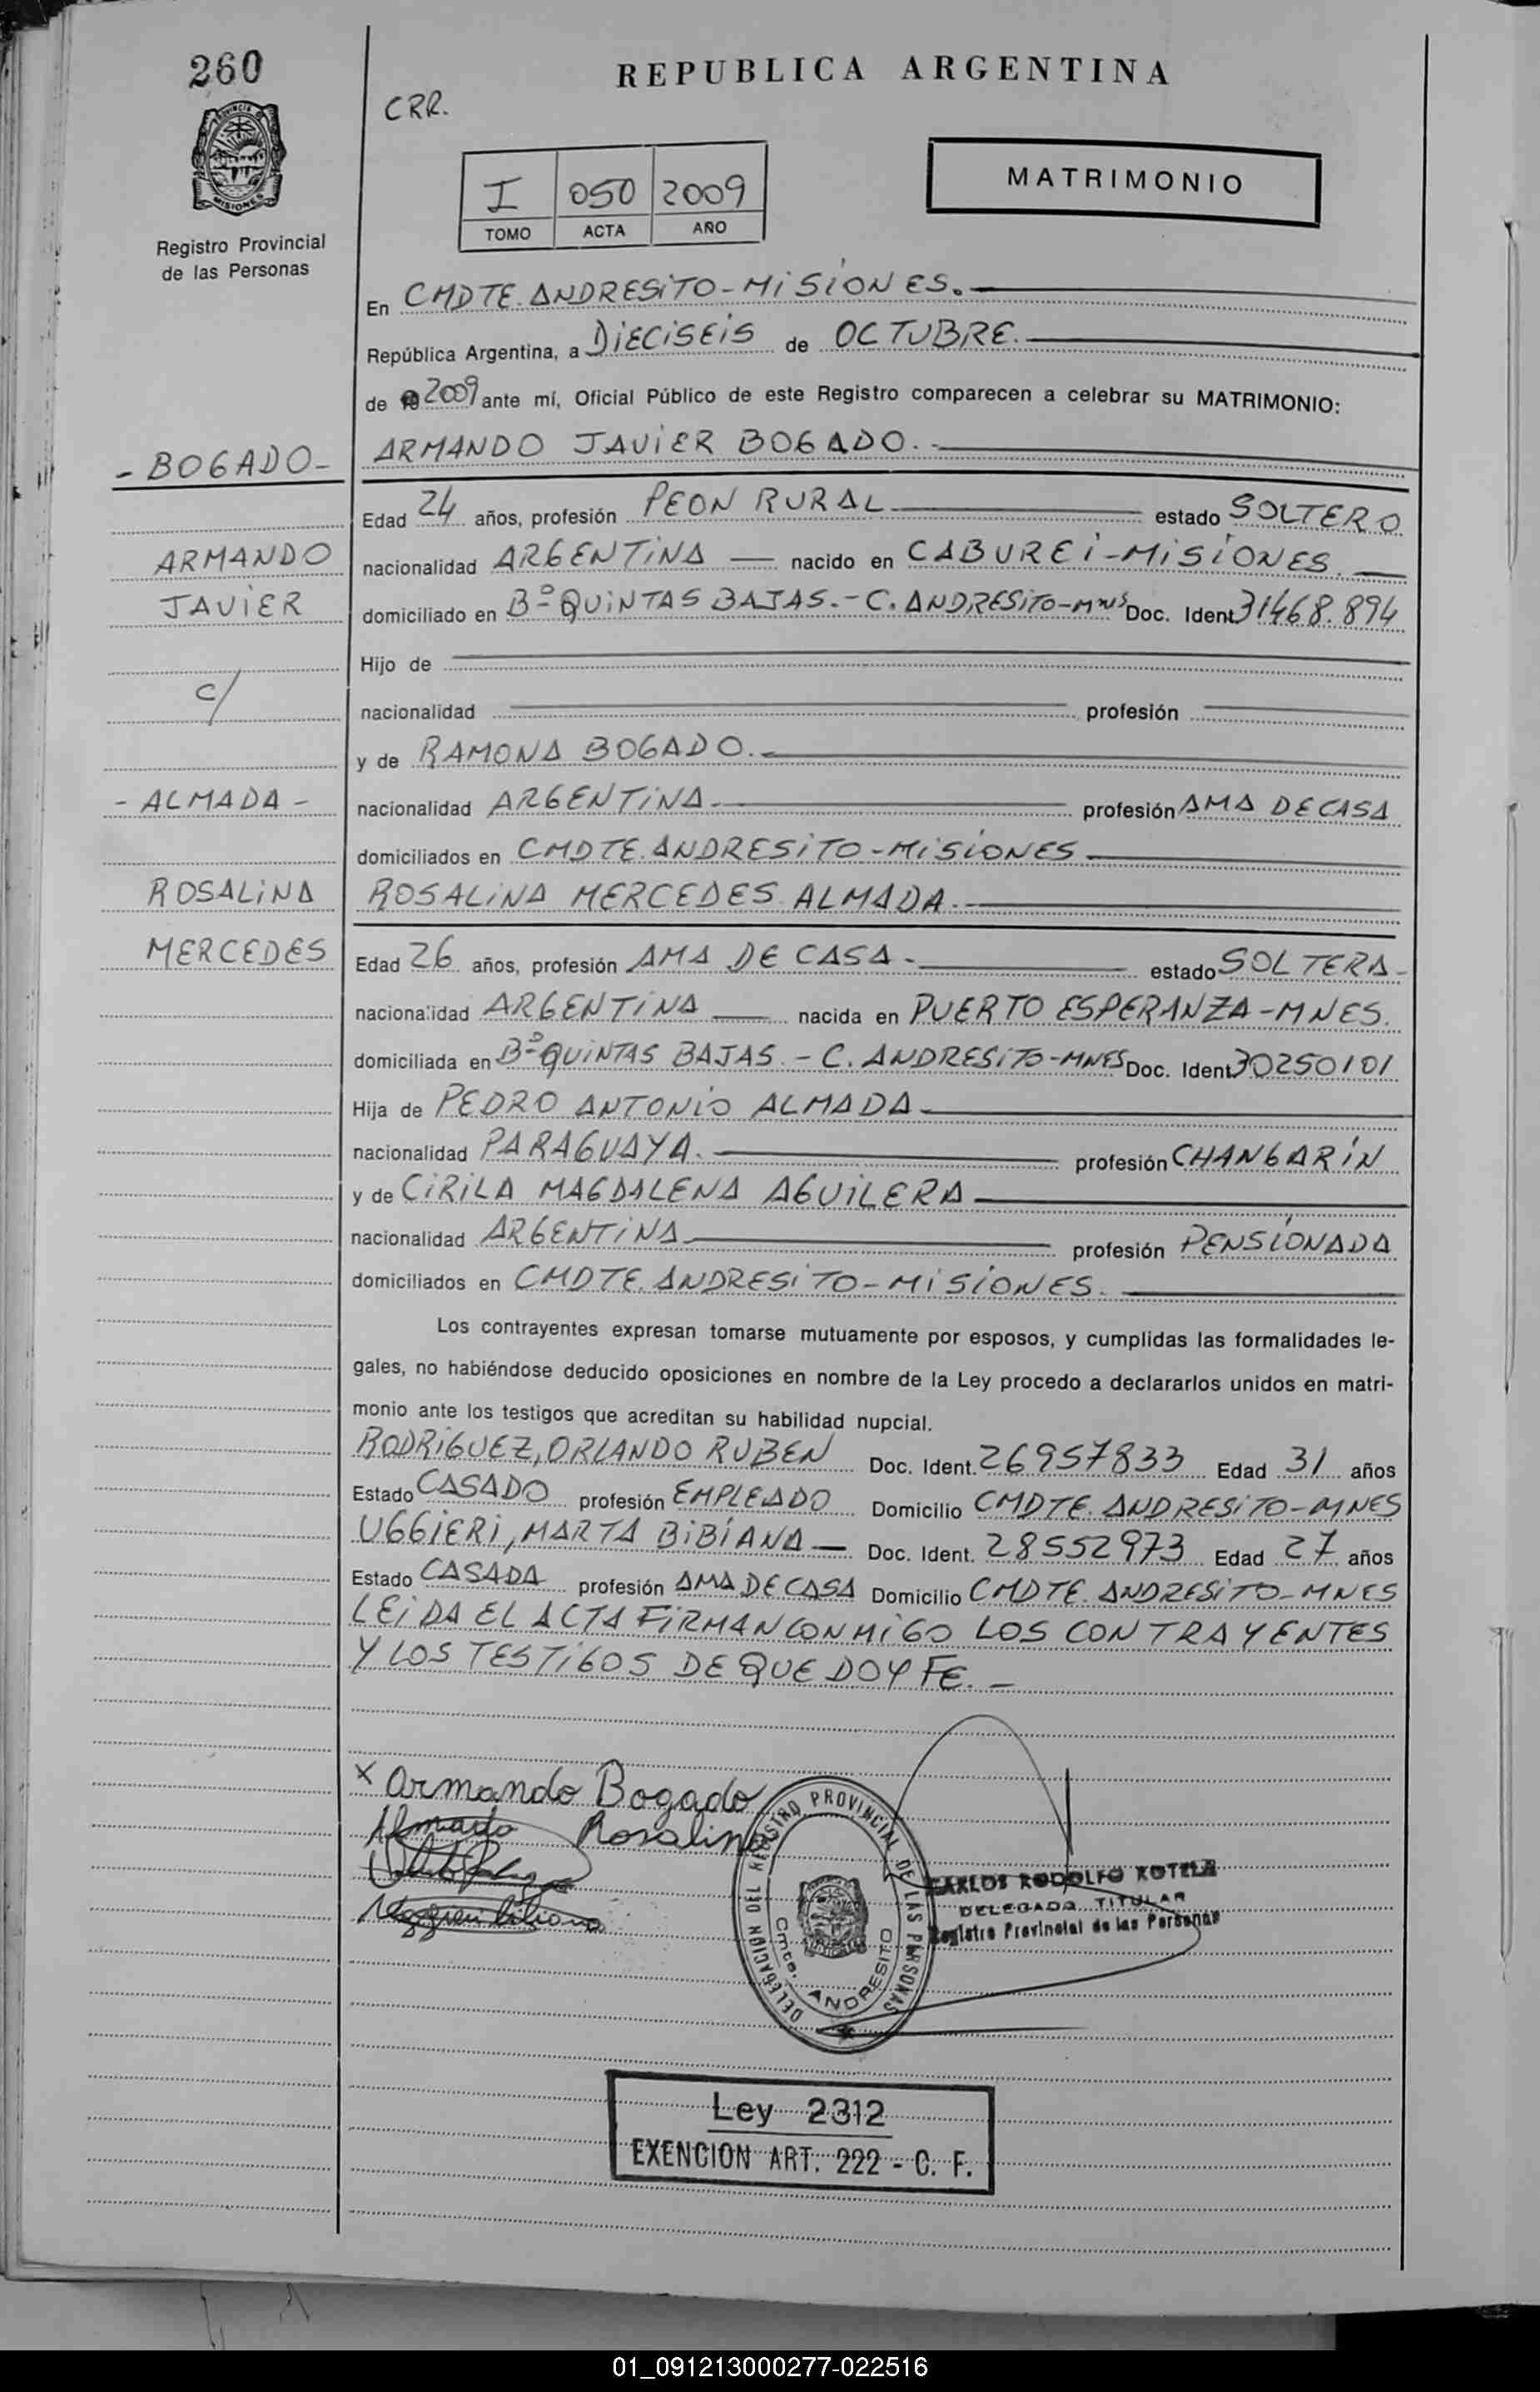 260
REPUBLICA ARGENTINA
CRR.
PROVINCIA DE
MISIONES
I 050 2009
TOMO ACTA AÑO
MATRIMONIO
Registro Provincial
de las Personas
En CMDTE. ANDRESITO - MISIONES.
República Argentina, a DIECISEIS de OCTUBRE.
de 2009 ante mí, Oficial Público de este Registro comparecen a celebrar su MATRIMONIO:
- BOGADO - ARMANDO JAVIER BOGADO. -
Edad 24 años, profesión PEON RURAL estado SOLTERO
ARMANDO nacionalidad ARGENTINA — nacido en CABUREI - MISIONES. —
JAVIER domiciliado en Bº QUINTAS BAJAS. - C. ANDRESITO - Mnes Doc. Ident. 31468.894
Hijo de
c/ nacionalidad profesión
y de RAMONA BOGADO. -
- ALMADA - nacionalidad ARGENTINA. profesión AMA DE CASA
domiciliados en CMDTE. ANDRESITO - MISIONES
ROSALINA ROSALINA MERCEDES ALMADA. -
MERCEDES Edad 26 años, profesión AMA DE CASA - estado SOLTERA -
nacionalidad ARGENTINA — nacida en PUERTO ESPERANZA - MNES.
domiciliada en Bº QUINTAS BAJAS. - C. ANDRESITO - MNES Doc. Ident. 30250101
Hija de PEDRO ANTONIO ALMADA
nacionalidad PARAGUAYA. profesión CHANGARIN
y de CIRILA MAGDALENA AGUILERA
nacionalidad ARGENTINA profesión PENSIONADA
domiciliados en CMDTE. ANDRESITO - MISIONES.
Los contrayentes expresan tomarse mutuamente por esposos, y cumplidas las formalidades le-
gales, no habiéndose deducido oposiciones en nombre de la Ley procedo a declararlos unidos en matri-
monio ante los testigos que acreditan su habilidad nupcial.
RODRIGUEZ, ORLANDO RUBEN Doc. Ident. 26957833 Edad 31 años
Estado CASADO profesión EMPLEADO Domicilio CMDTE. ANDRESITO - MNES
UGGIERI, MARTA BIBIANA — Doc. Ident. 28552973 Edad 27 años
Estado CASADA profesión AMA DE CASA Domicilio CMDTE. ANDRESITO - MNES
LEIDA EL ACTA FIRMAN CONMIGO LOS CONTRAYENTES
Y LOS TESTIGOS DE QUE DOY FE. -
x Armando Bogado
Almada Rosalina
DELEGACION DEL REGISTRO PROVINCIAL DE LAS PERSONAS
Cmte. ANDRESITO
CARLOS RODOLFO KOTELA
DELEGADO TITULAR
Registro Provincial de las Personas
Ley 2312
EXENCION ART. 222 - C. F.
01_091213000277-022516